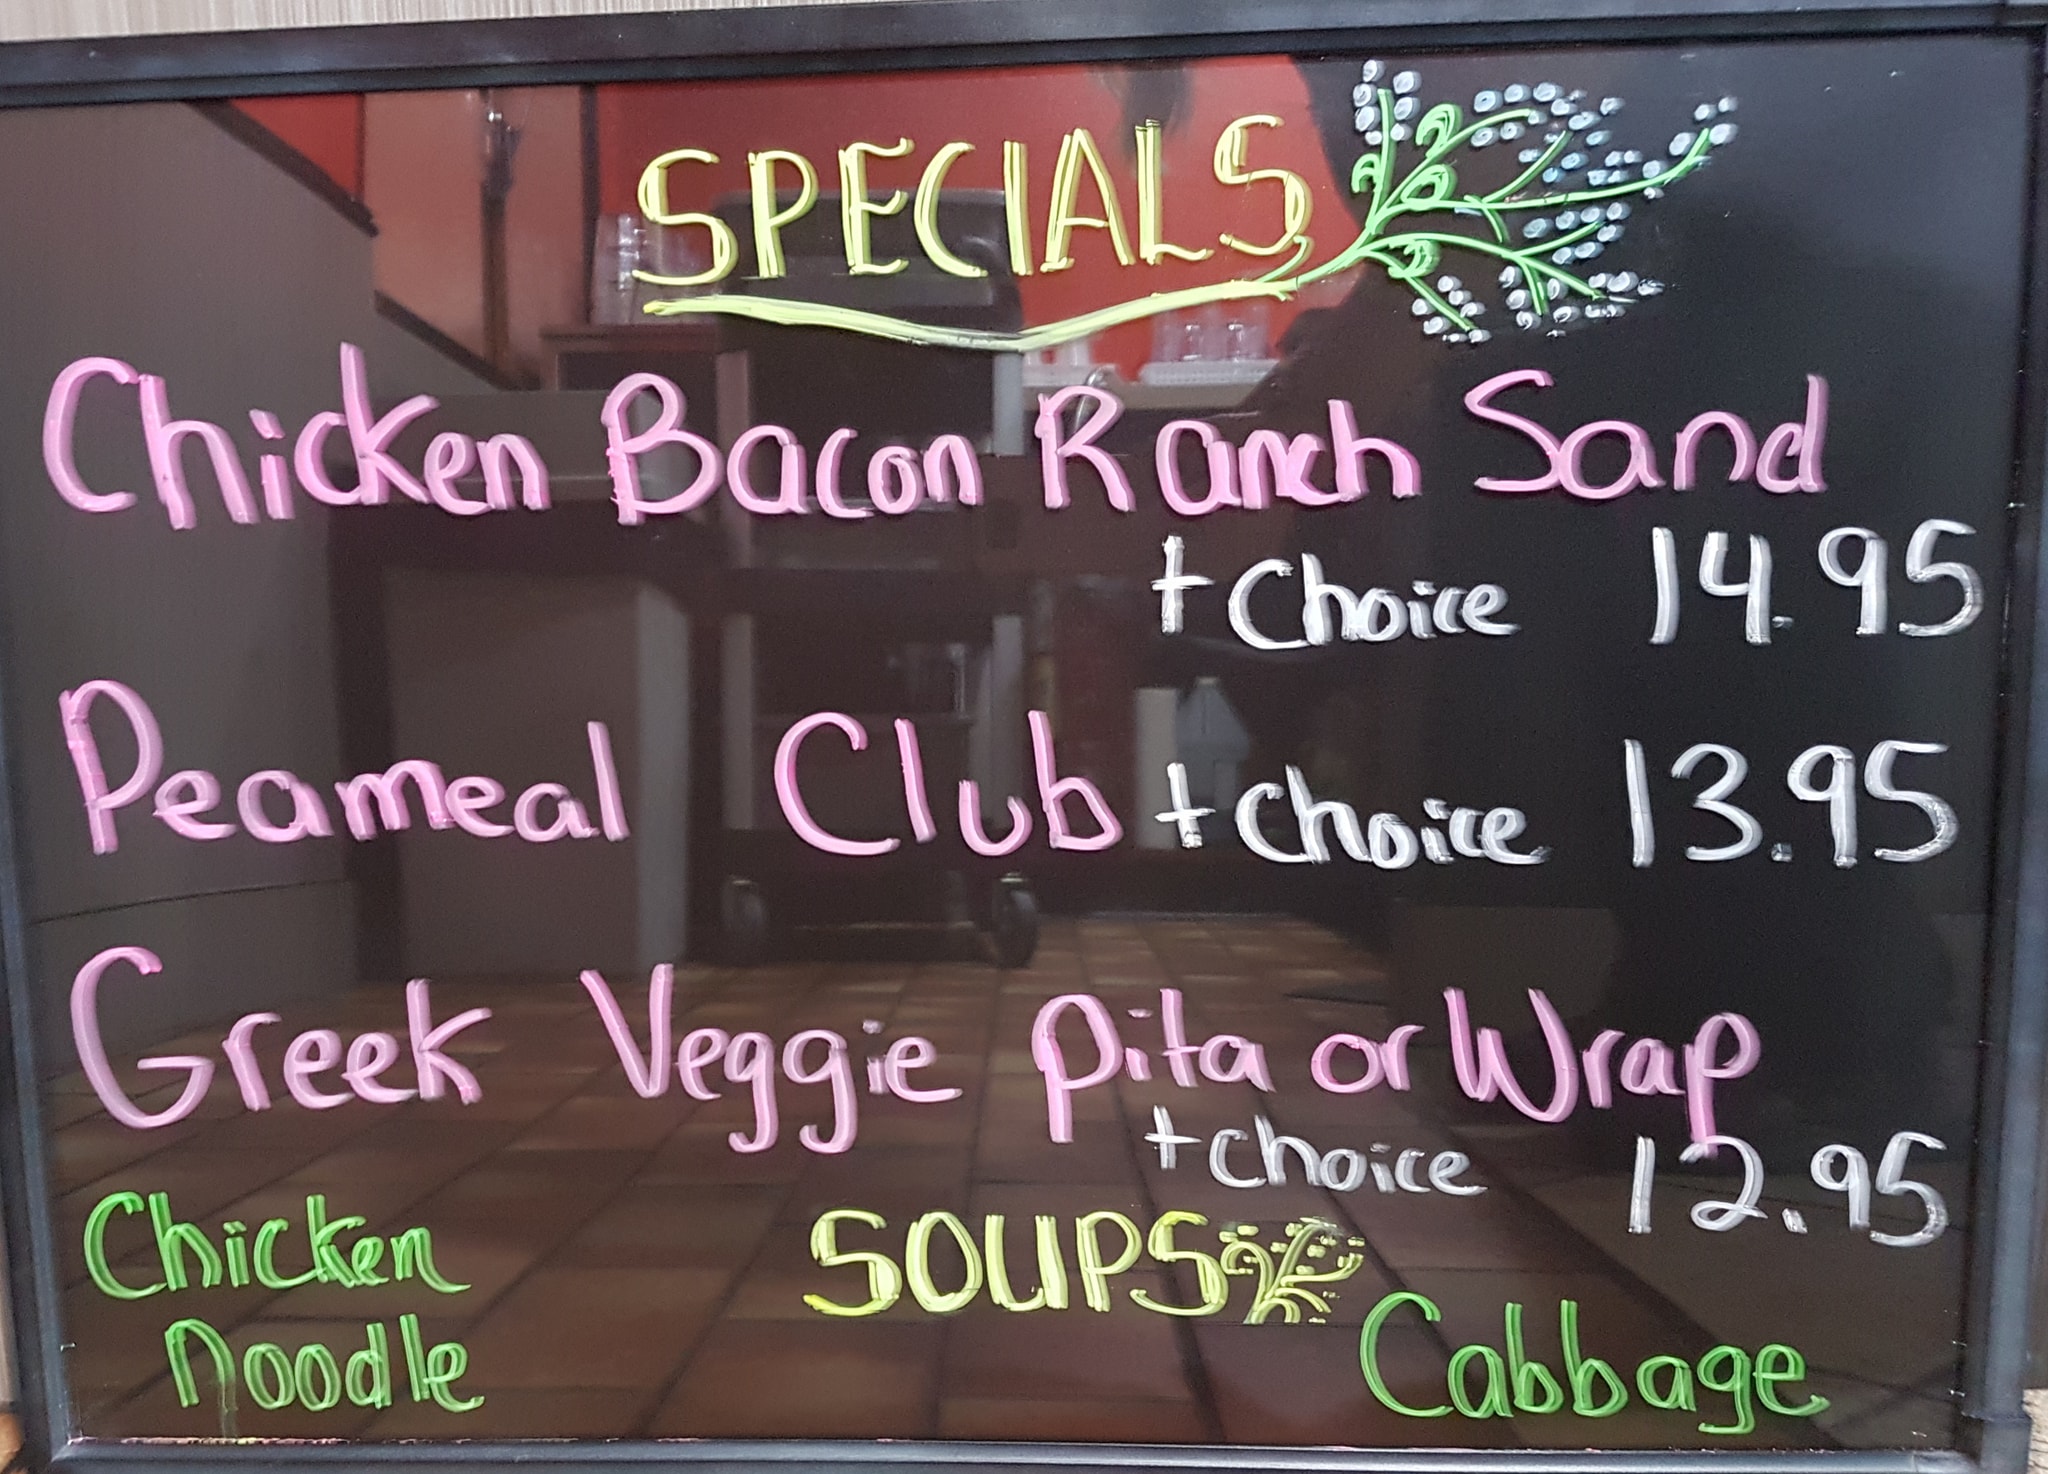 SPECIALS
Chicken Bacon Ranch Sand
+ Choice 14.95
Peameal Club + choice 13.95
Greek Veggie Pita or Wrap
+ choice 12.95
SOUPS
Chicken
Noodle
Cabbage